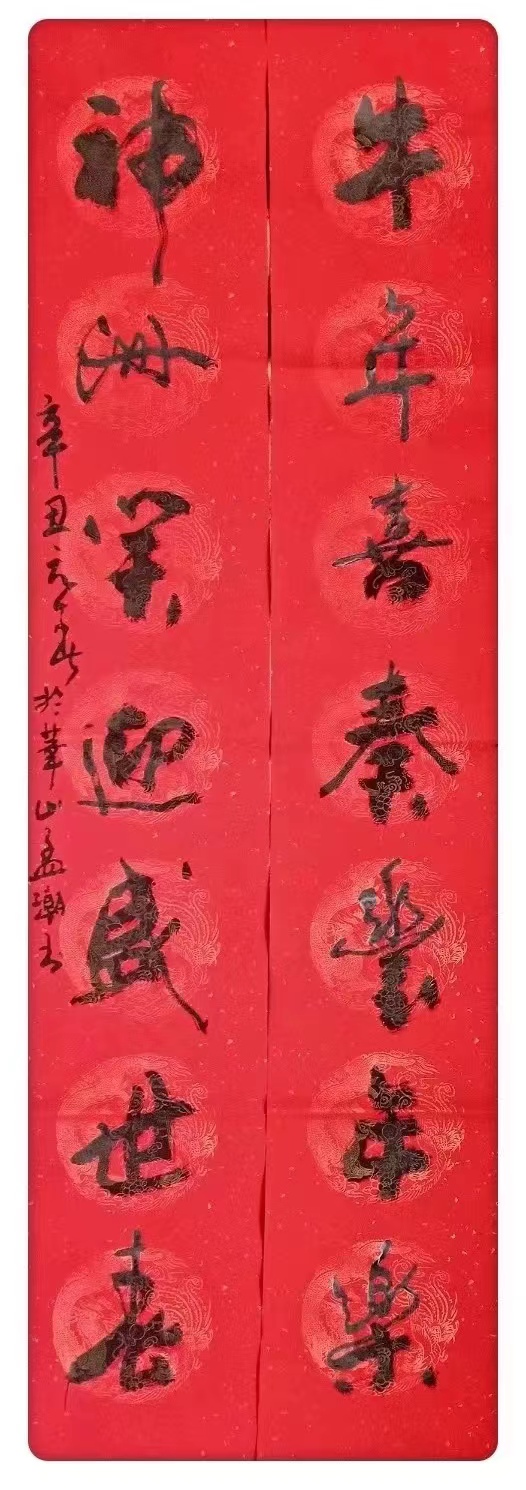 牛年喜奏豐年樂
神州笑迎盛世春
辛丑元春於華山孟潮書